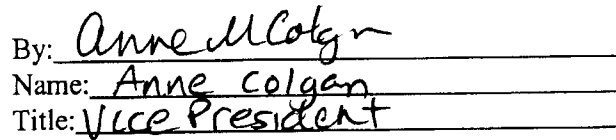 By: Anne M Colgan
Name: Anne Colgan
Title: Vice President